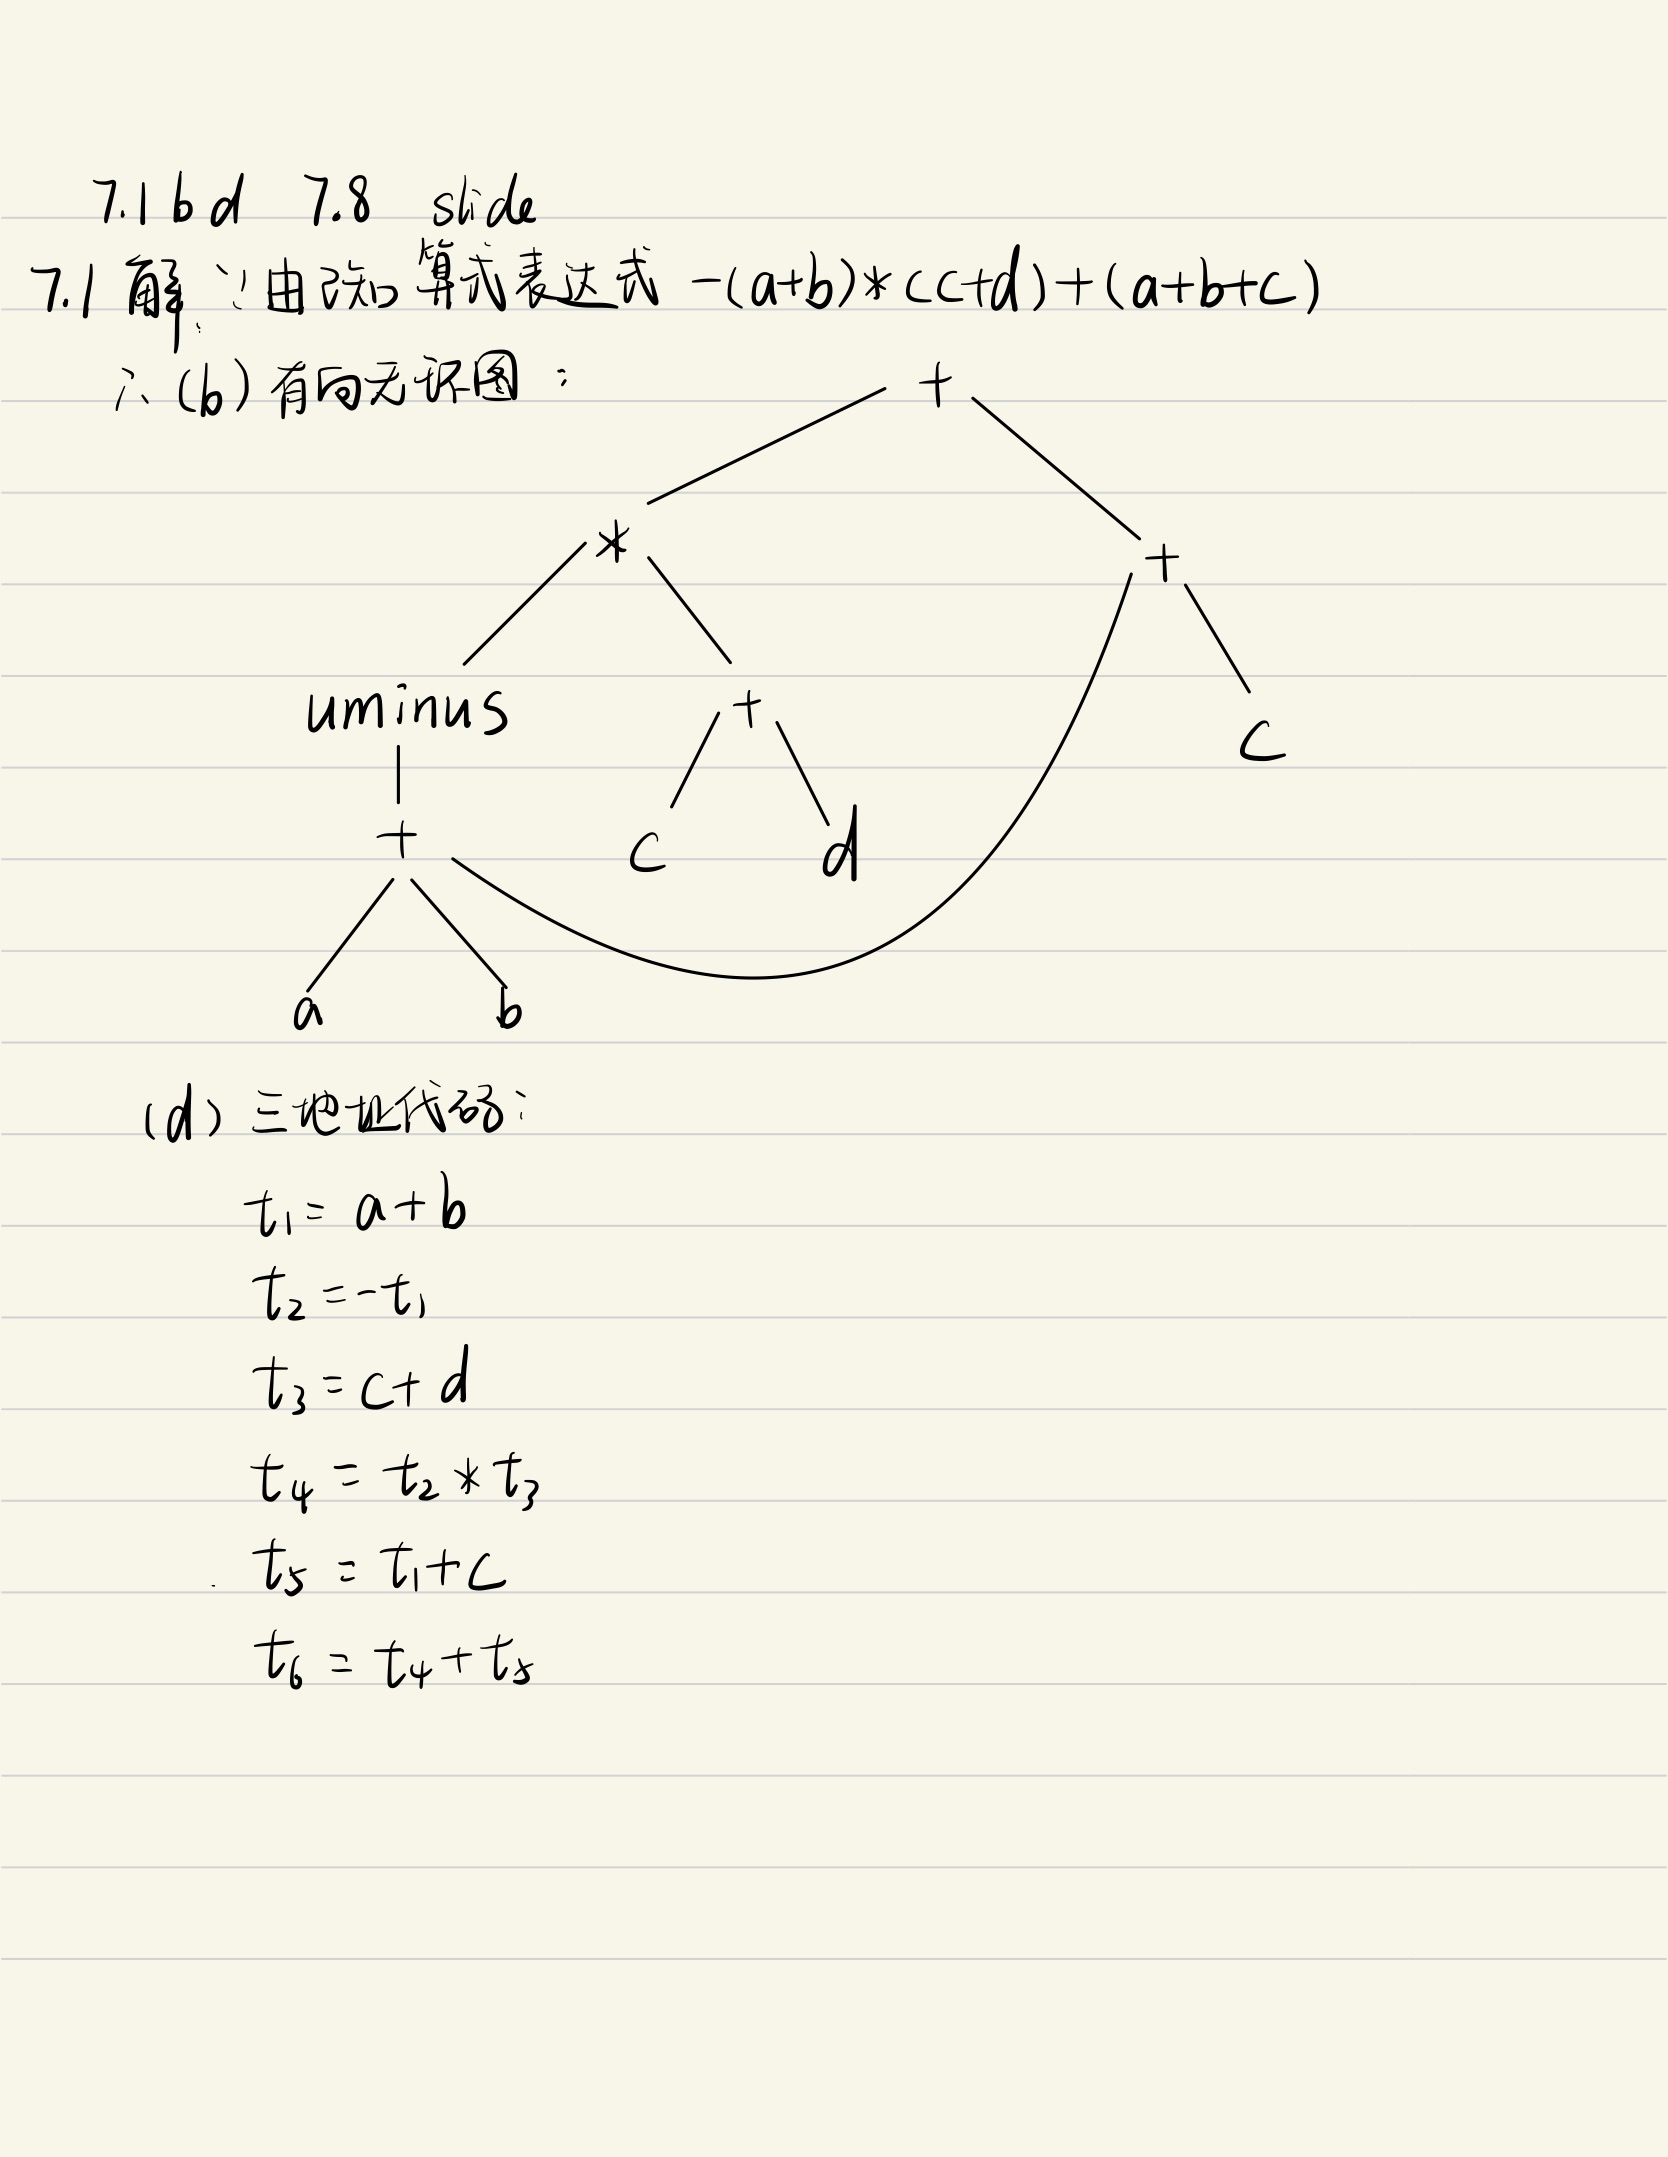 7.1 b d 7.8 slide
7.1 解: ∵由已知算式表达式 -(a+b)*(c+d)+(a+b+c)
∴ (b) 有向无环图:
+
*
+
uminus
+
c
+
c
d
a
b
(d) 三地址代码:
t₁ = a+b
t₂ = -t₁
t₃ = c+d
t₄ = t₂ * t₃
t₅ = t₁+c
t₆ = t₄+t₅